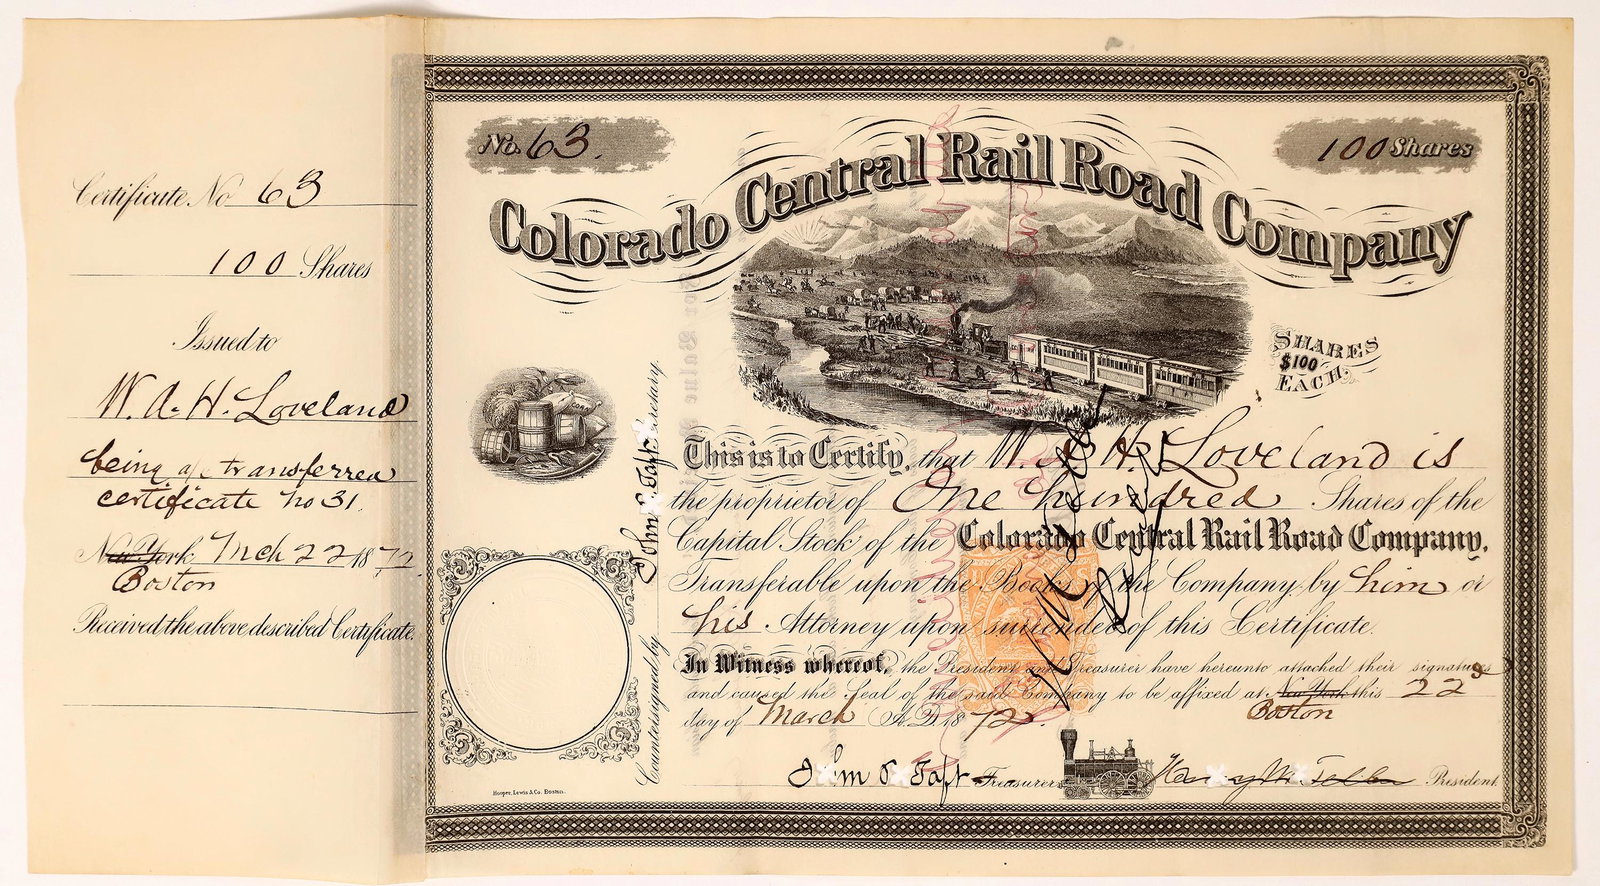 Certificate No 63
100 Shares
Issued to
W. A. H. Loveland
being a/c transferred
certificate no 31.
New York Mch 22 1872
Boston
Received the above described Certificate.
No. 63.
100 Shares
Colorado Central Rail Road Company
SHARES
$100
EACH.
This is to Certify, that W. A. H. Loveland is
the proprietor of One hundred Shares of the
Capital Stock of the Colorado Central Rail Road Company,
Transferable upon the Books of the Company by him or
his Attorney upon surrender of this Certificate.
In Witness whereof, the President and Treasurer have hereunto attached their signatures
and caused the Seal of the said Company to be affixed at New York this 22d
Boston
day of March A.D. 1872.
John S. Taft Treasurer
Henry M. Teller President
Countersigned by John S. Taft Secretary.
Hooper, Lewis & Co. Boston.